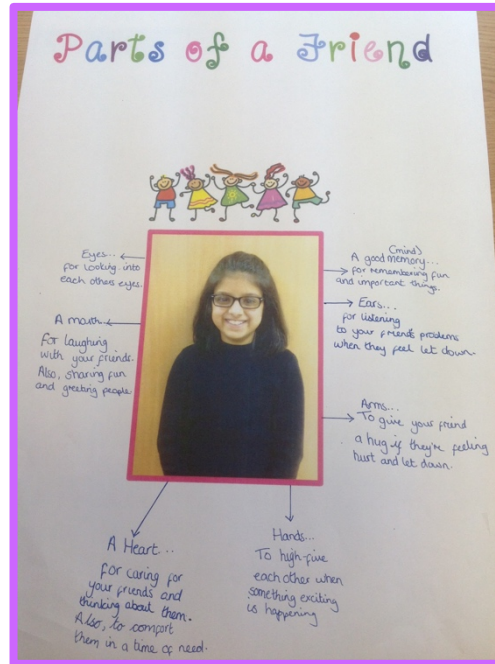 Parts of a Friend
Eyes...
for looking into
each others eyes.
A mouth
For laughing
with your friends.
Also, sharing fun
and greeting people
(mind)
A good memory...
for remembering fun
and important things.
Ears...
for listening
to your friends problems
when they feel let down.
Arms...
To give your friend
a hug if they're feeling
hurt and let down.
A Heart...
for caring for
your friends and
thinking about them.
Also, to comfort
them in a time of need.
Hands...
To high-five
each other when
something exciting
is happening